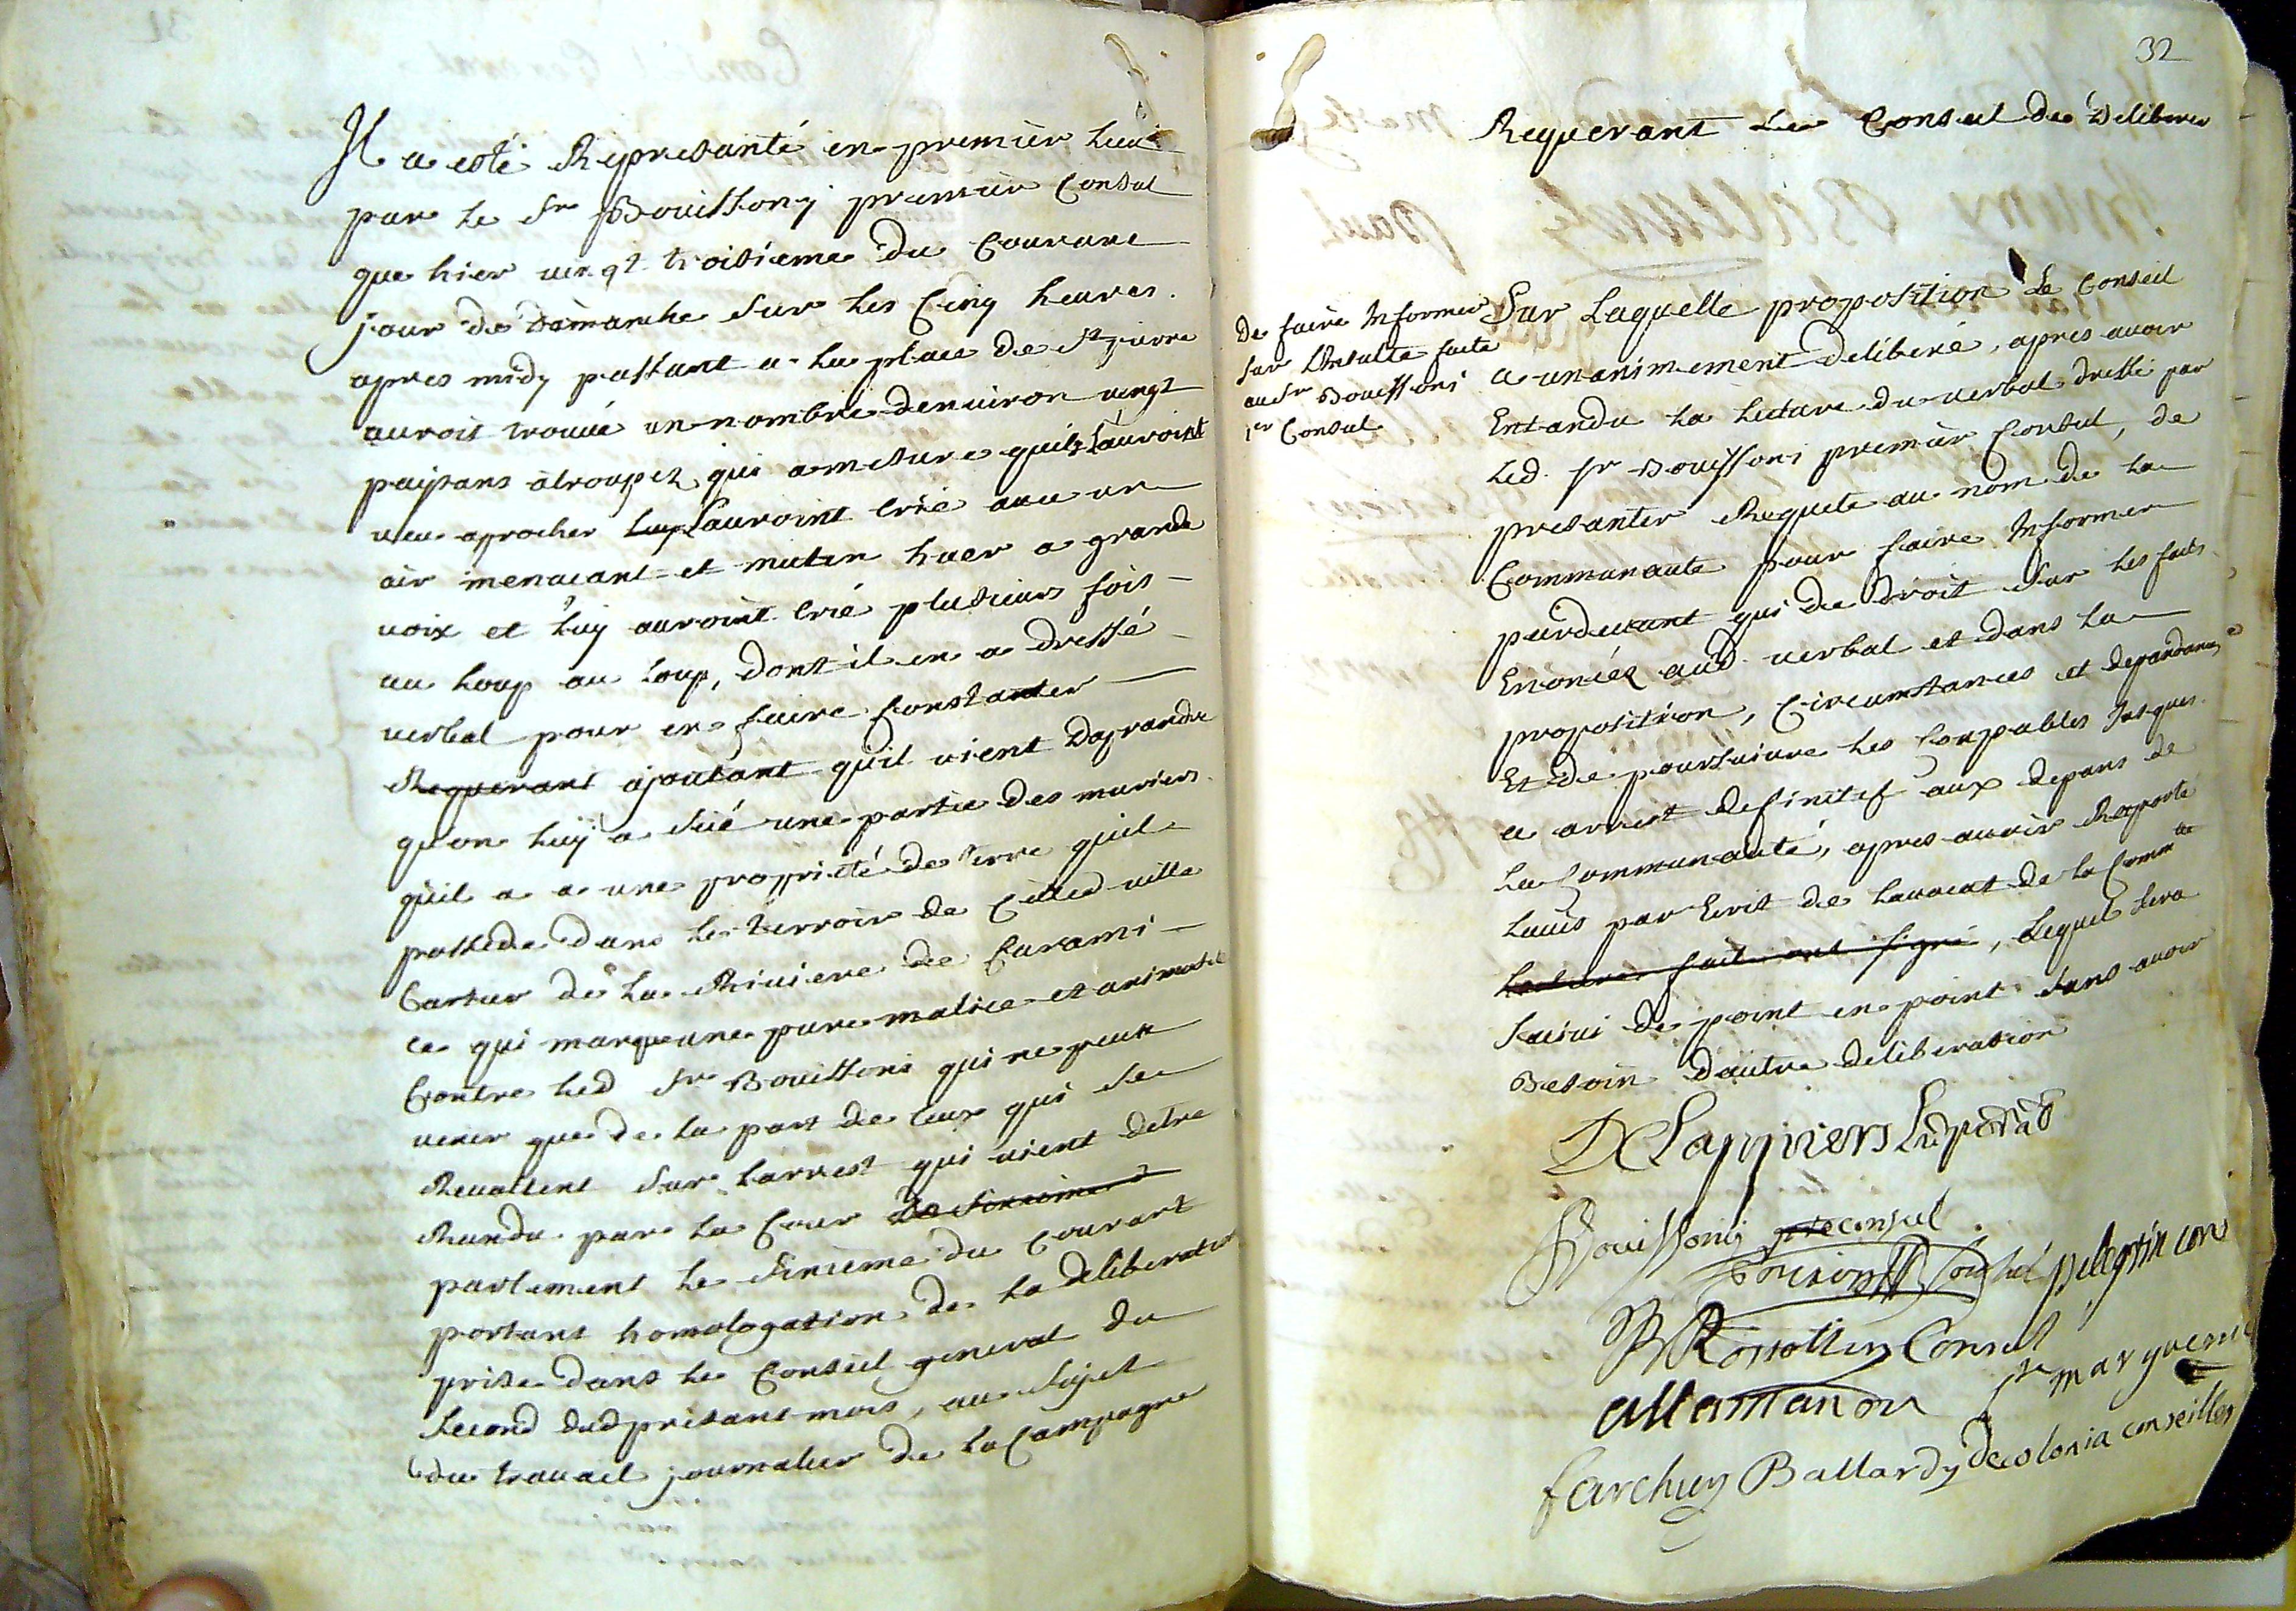 Il a esté Represanté en premier lieu
par le Sr Bouissony premier Consul
que hier vingt troisieme du Courant
jour de dimanche sur les Cinq heures
apres midy passant a la place de St pierre
auroit trouvé un nombre denviron vingt
paisans atroupez qui a mesure quils lauroint
veu aprocher luy lauroint crié avec un
air menacant et mutin huer a grande
voix et luy auroint crié plusieurs fois
au loup au loup, dont il en a dressé
verbal pour en faire Constanter
Requerant ajoutant quil vient daprandre
quon luy a sié une partie des muriers
quil a a une proprieté de terre quil
possede dans le terroir de Cetted ville
Cartier de la Riviere de Carami
ce qui marque une pure malice et animosité
Contre led Sr Bouissoni qui ne peut
venir que de la part de Ceux qui se
Revoltent sur larrest qui vient detre
Randu par la Cour de
parlement le Sixieme du Courant
portant homologation de la deliberation
prise dans le Conseil general du
second dud presant mois, au sujet
du travail journalier de la Campagne
32
Requerant le Conseil de deliberer
De faire Informer
sur L'Insulte faite
au Sr Bouissoni
1er Consul
Sur Laquelle proposition Le Conseil
a unanimement deliberé, apres avoir
Entandu la lecture du verbal dressé par
led. Sr Bouissoni premier Consul, de
presanter Requete au nom de la
Communauté pour faire Informer
pardevant qui de droit sur les faits
Enoncés aud. verbal et dans la
proposition, Circumstances et depandances
Et de poursuivre les Coupables Jusques
a arrest definitif aux depans de
la Communauté, apres avoir Raporté
lavis par Ecrit de lavocat de la Commté
fait ont signé, Lequel sera
suivi de point en point sans avoir
Besoin dautre deliberation
DeLappiers
Bouissony pre consul
pelegrin cons
Consul
allemandy
Sr marguerit
farchuy Ballardy Decolonia conseiller